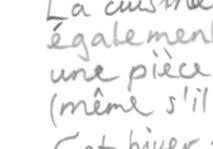 La cuisine
également
une pièce
(même s'il